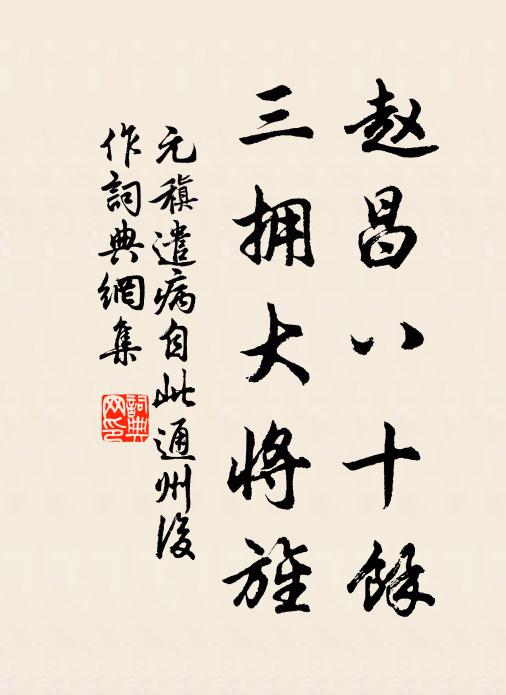 赵昌八十馀
三拥大将旌
元稹遣病自此通州後
作詞典網集
詞典网印